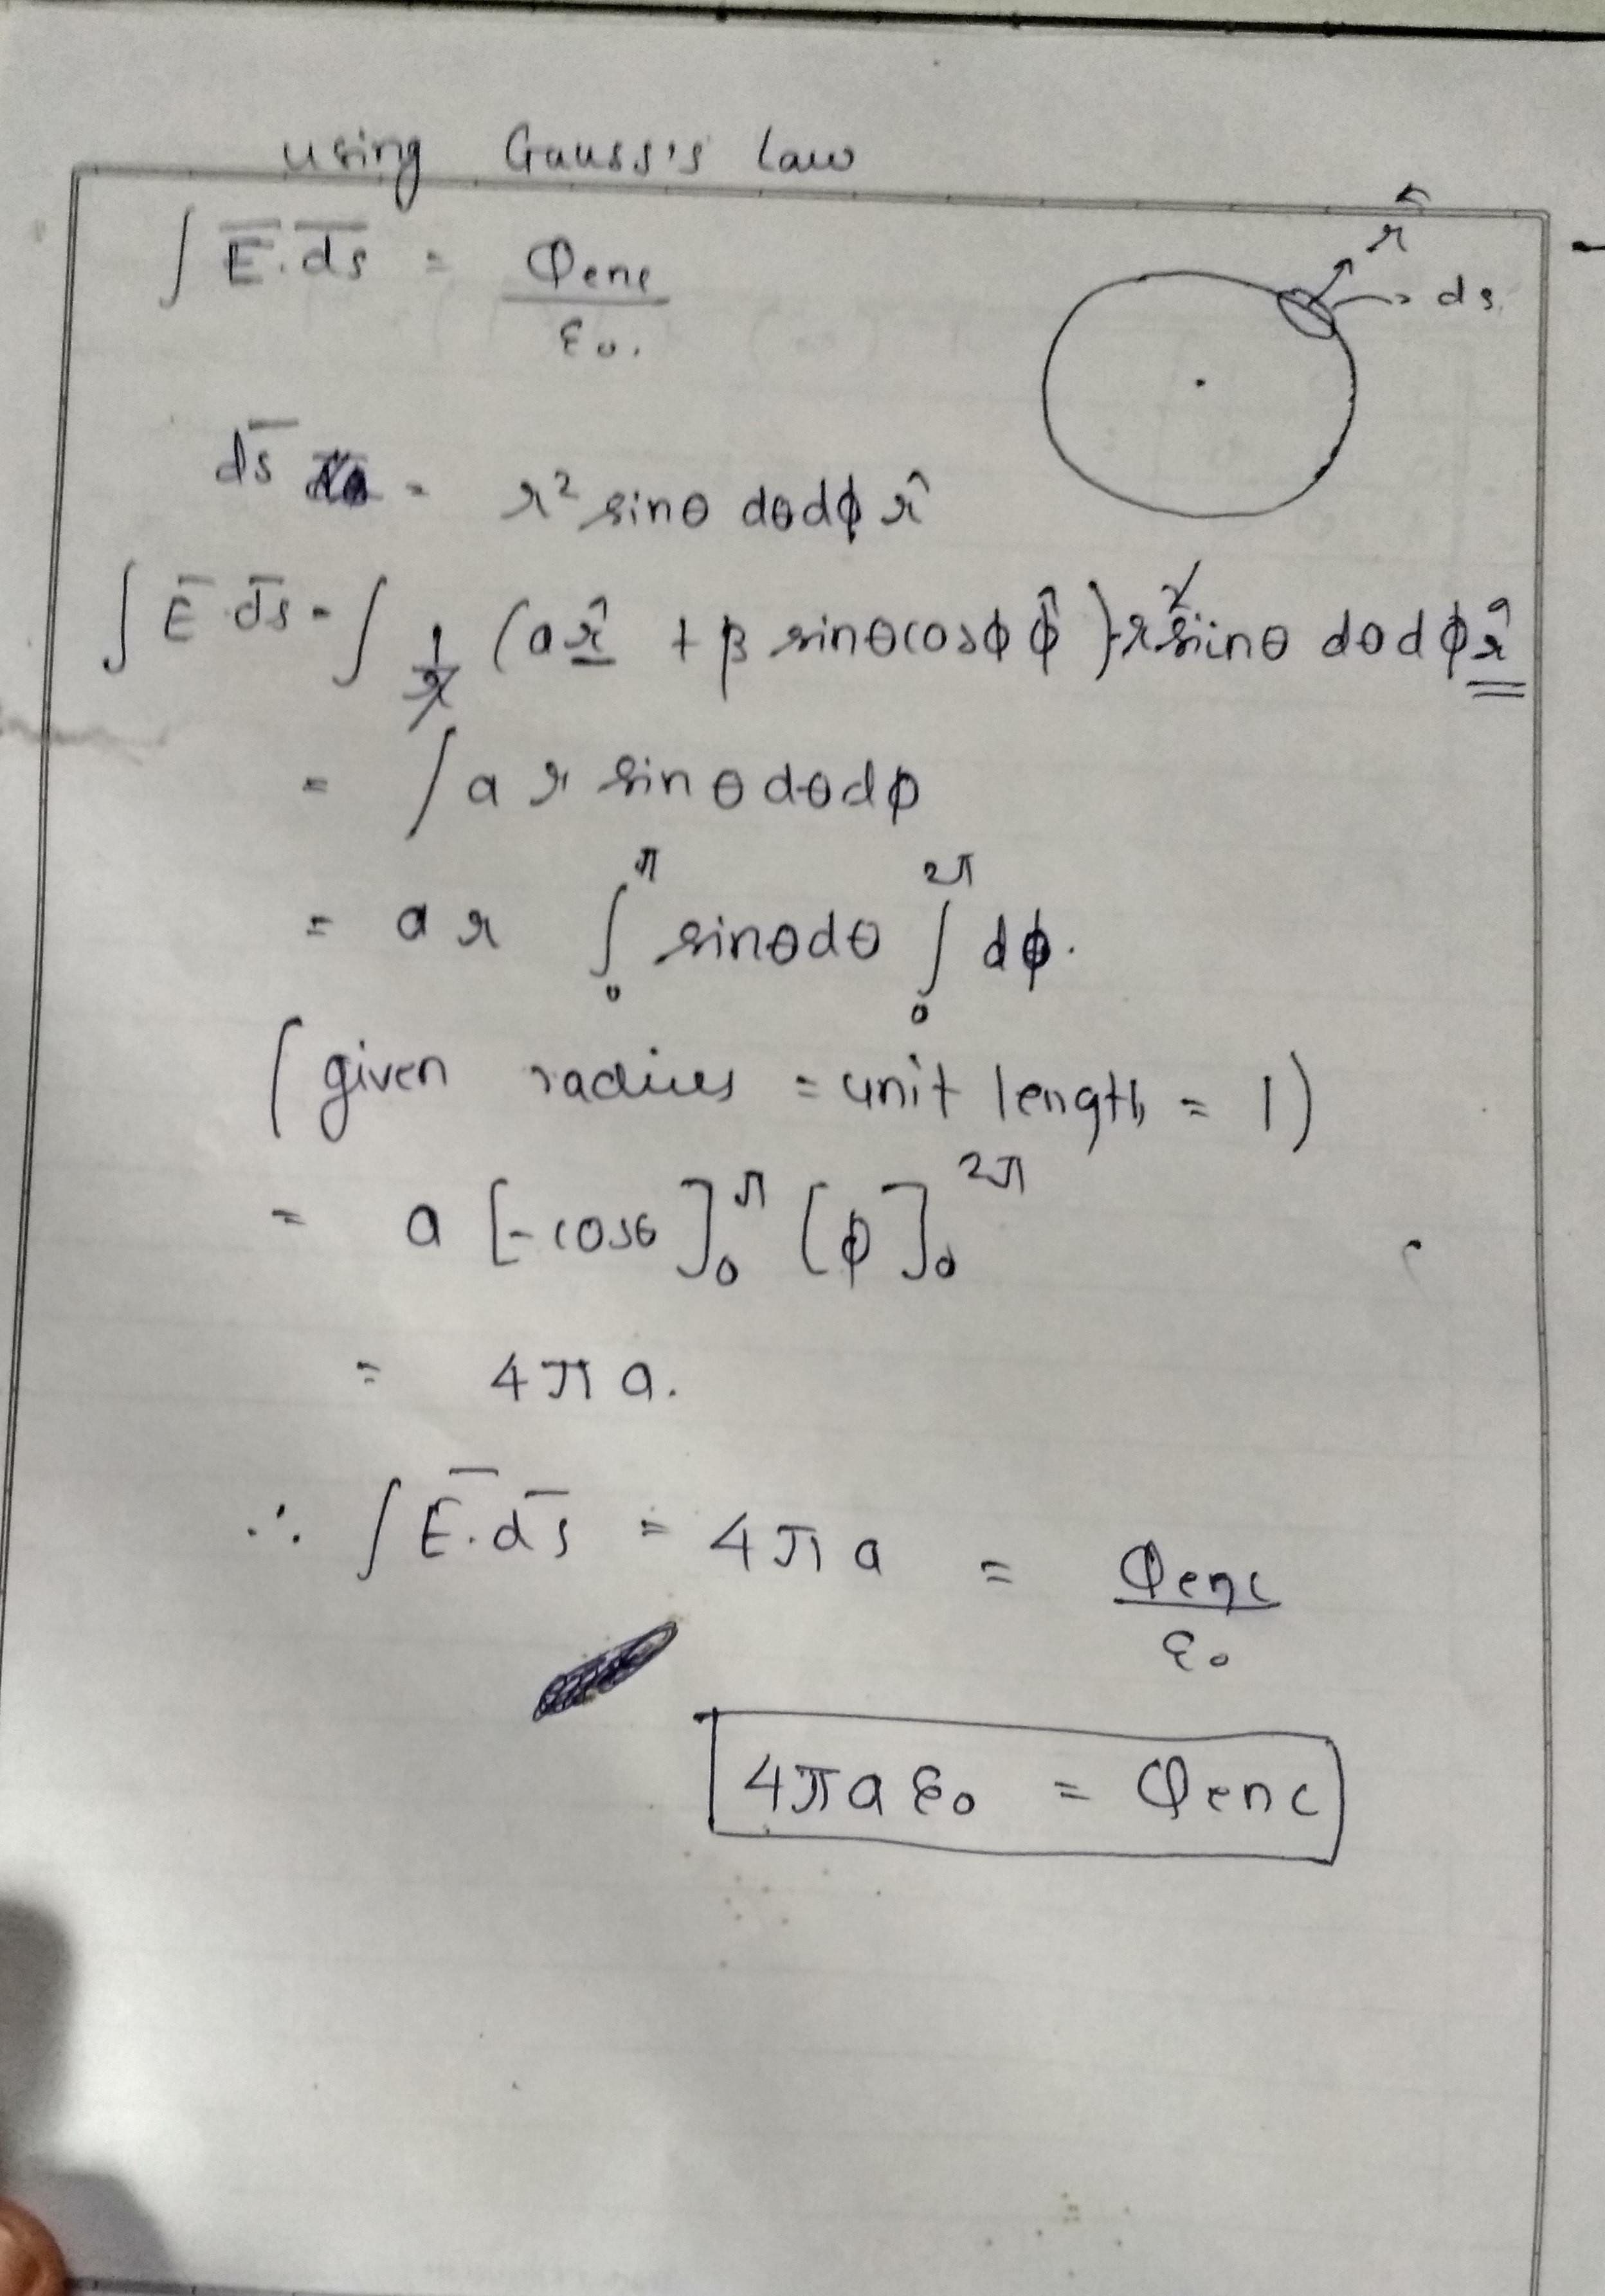 using Gauss's Law
∫ E̅.d̅s̅ = Qenc / ε₀.
r̂
ds
ds̅ = r² sinθ dθdϕ r̂
∫ E̅.d̅s = ∫ 1/r (a r̂ + β sinθcosϕ ϕ̂).r² sinθ dθdϕ r̂
= ∫ a r sinθdθdϕ
= a r ∫₀^π sinθdθ ∫₀^2π dϕ.
(given radius = unit length = 1)
= a [-cosθ]₀^π [ϕ]₀^2π
= 4πa.
∴ ∫ E̅.d̅s = 4πa = Qenc / ε₀
4πaε₀ = Qenc